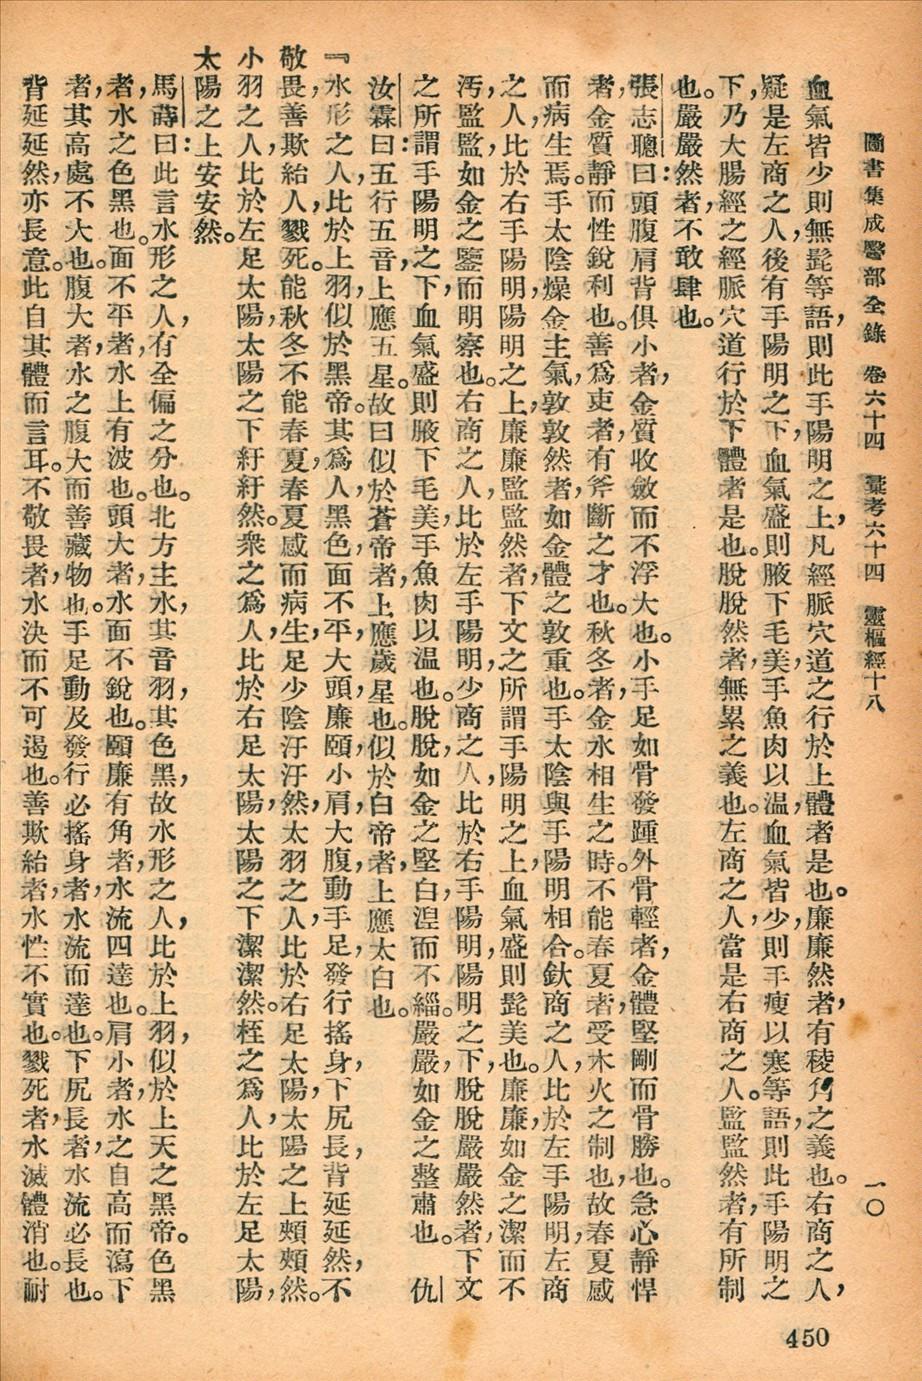 圖書集成醫部全錄　卷六十四　彙考六十四　靈樞經十八　一〇
血氣皆少則無髭等語，則此手陽明之上，凡經脈穴道之行於上體者是也。廉廉然者，有稜角之義也。右商之人，
疑是左商之人，後有手陽明之下，血氣盛則腋下毛美，手魚肉以溫，血氣皆少，則手瘦以寒等語，則此手陽明之
下，乃大腸經之經脈穴道行於下體者是也。脫脫然者，無累之義也。左商之人，當是右商之人。監監然者，有所制
也。嚴嚴然者，不敢肆也。
張志聰曰：頭腹肩背俱小者，金質收斂而不浮大也。小手足如骨發踵外骨輕者，金體堅剛而骨勝也。急心靜悍
者，金質靜而性銳利也。善爲吏者，有斧斷之才也。秋冬者，金水相生之時。不能春夏者，受木火之制也，故春夏感
而病生焉。手太陰燥金主氣，敦敦然者，如金體之敦重也。手太陰與手陽明相合。釱商之人，比於左手陽明，左商
之人，比於右手陽明，陽明之上，廉廉監監然者，下文之所謂手陽明之上，血氣盛則髭美也。廉廉，如金之潔而不
汚，監監，如金之鑒而明察也。右商之人，比於左手陽明，少商之人，比於右手陽明，陽明之下，脫脫嚴嚴然者，下文
之所謂手陽明之下，血氣盛則腋下毛美，手魚肉以溫也。脫脫，如金之堅白，湼而不緇。嚴嚴，如金之整肅也。　仇
汝霖曰：五行五音，上應五星。故曰似於蒼帝者，上應歲星也。似於白帝者，上應太白也。
『水形之人，比於上羽，似於黑帝。其爲人，黑色，面不平，大頭，廉頤，小肩，大腹，動手足，發行搖身，下尻長，背延延然，不
敬畏，善欺紿人，戮死。能秋冬不能春夏，春夏感而病生，足少陰汗汗然。太羽之人，比於右足太陽，太陽之上頰頰然。
小羽之人，比於左足太陽，太陽之下紆紆然。衆之爲人，比於右足太陽，太陽之下潔潔然。桎之爲人，比於左足太陽，
太陽之上安安然。
馬蒔曰：此言水形之人，有全偏之分也。北方主水，其音羽，其色黑，故水形之人，比於上羽，似於上天之黑帝。色黑
者，水之色黑也。面不平者，水上有波也。頭大者，水面不銳也。頤廉有角者，水流四達也。肩小者，水之自高而瀉下
者，其高處不大也。腹大者，水之腹大而善藏物也。手足動及發行必搖身者，水流而達也。下尻長者，水流必長也。
背延延然，亦長意。此自其體而言耳。不敬畏者，水決而不可遏也。善欺紿者，水性不實也。戮死者，水滅體消也。耐
450